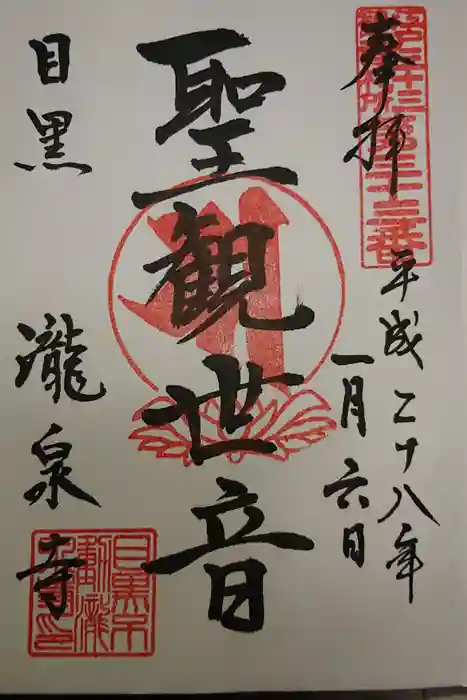 奉拝
平成二十八年
一月六日
聖観世音
目黒
瀧泉寺